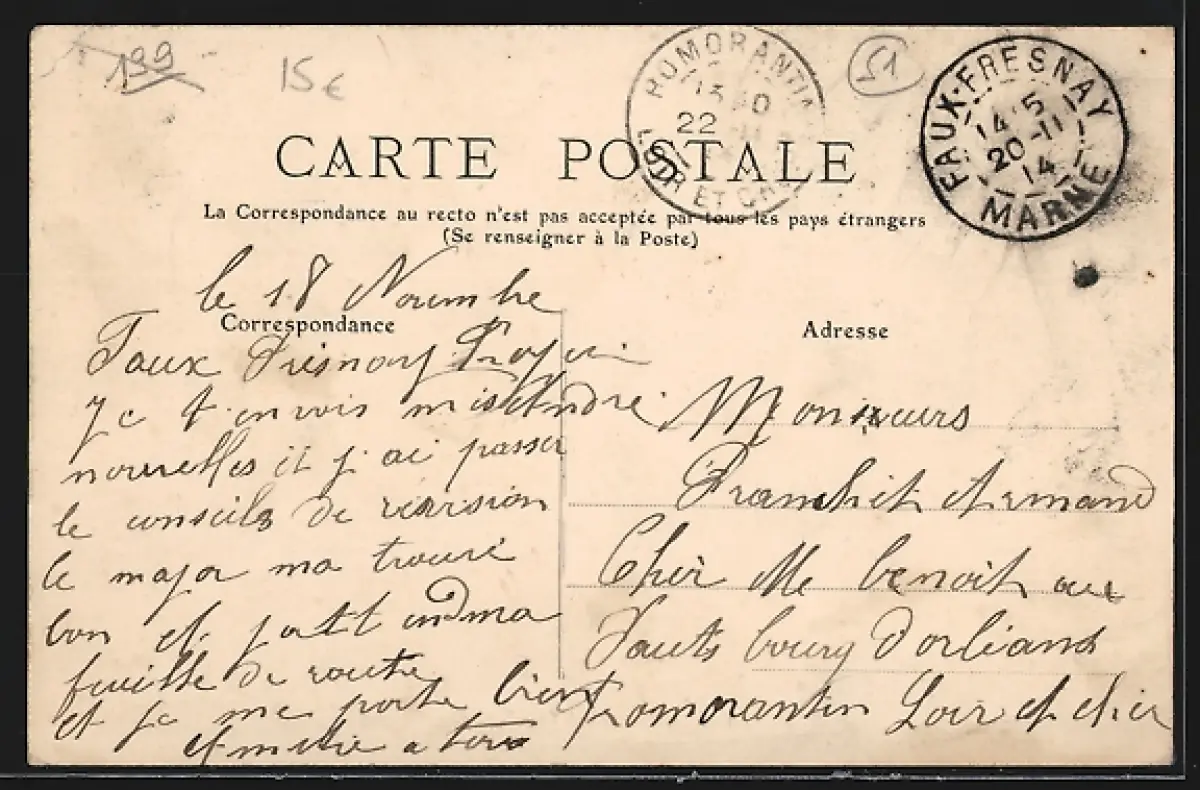 199
15€
51
ROMORANTIN
13 0
22
LOIR ET CHER
FAUX-FRESNAY
14 15
20-11
14
MARNE
CARTE POSTALE
La Correspondance au recto n'est pas acceptée par tous les pays étrangers
(Se renseigner à la Poste)
Correspondance
Adresse
le 18 Novembre
Faux Fresnay
envois
nouvelles et j ai passer
le conseils de revision
le major ma trouvé
bon et
feuille de route
et je me porte bien
Amitie a tous
Monsieurs
Armand
Cher Me benoit aux
Hauts bourg D'orléans
Romorantin Loir et cher